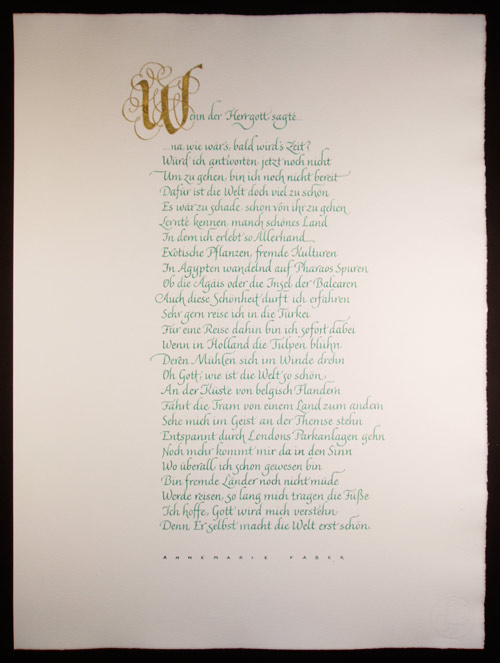 Wenn der Herrgott sagte...
...na, wie wär's, bald wird's Zeit?
Würd ich antworten, jetzt noch nicht
Um zu gehen, bin ich noch nicht bereit
Dafür ist die Welt doch viel zu schön
Es wär zu schade, schon von ihr zu gehen
Lernte kennen, manch schönes Land
In dem ich erlebt so Allerhand...
Exotische Pflanzen, fremde Kulturen
In Ägypten wandelnd auf Pharaos Spuren
Ob die Ägäis oder die Insel der Balearen
Auch diese Schönheit durft ich erfahren
Sehr gern reise ich in die Türkei
Für eine Reise dahin bin ich sofort dabei
Wenn in Holland die Tulpen blühn
Deren Mühlen sich im Winde drehn
Oh Gott, wie ist die Welt so schön
An der Küste von belgisch Flandern
Fährt die Tram von einem Land zum andern
Sehe mich im Geist an der Themse stehn
Entspannt durch Londons Parkanlagen gehn
Noch mehr kommt mir da in den Sinn
Wo überall ich schon gewesen bin
Bin fremde Länder noch nicht müde
Werde reisen, so lang mich tragen die Füße
Ich hoffe, Gott wird mich verstehn
Denn Er selbst macht die Welt erst schön.
ANNEMARIE FABER